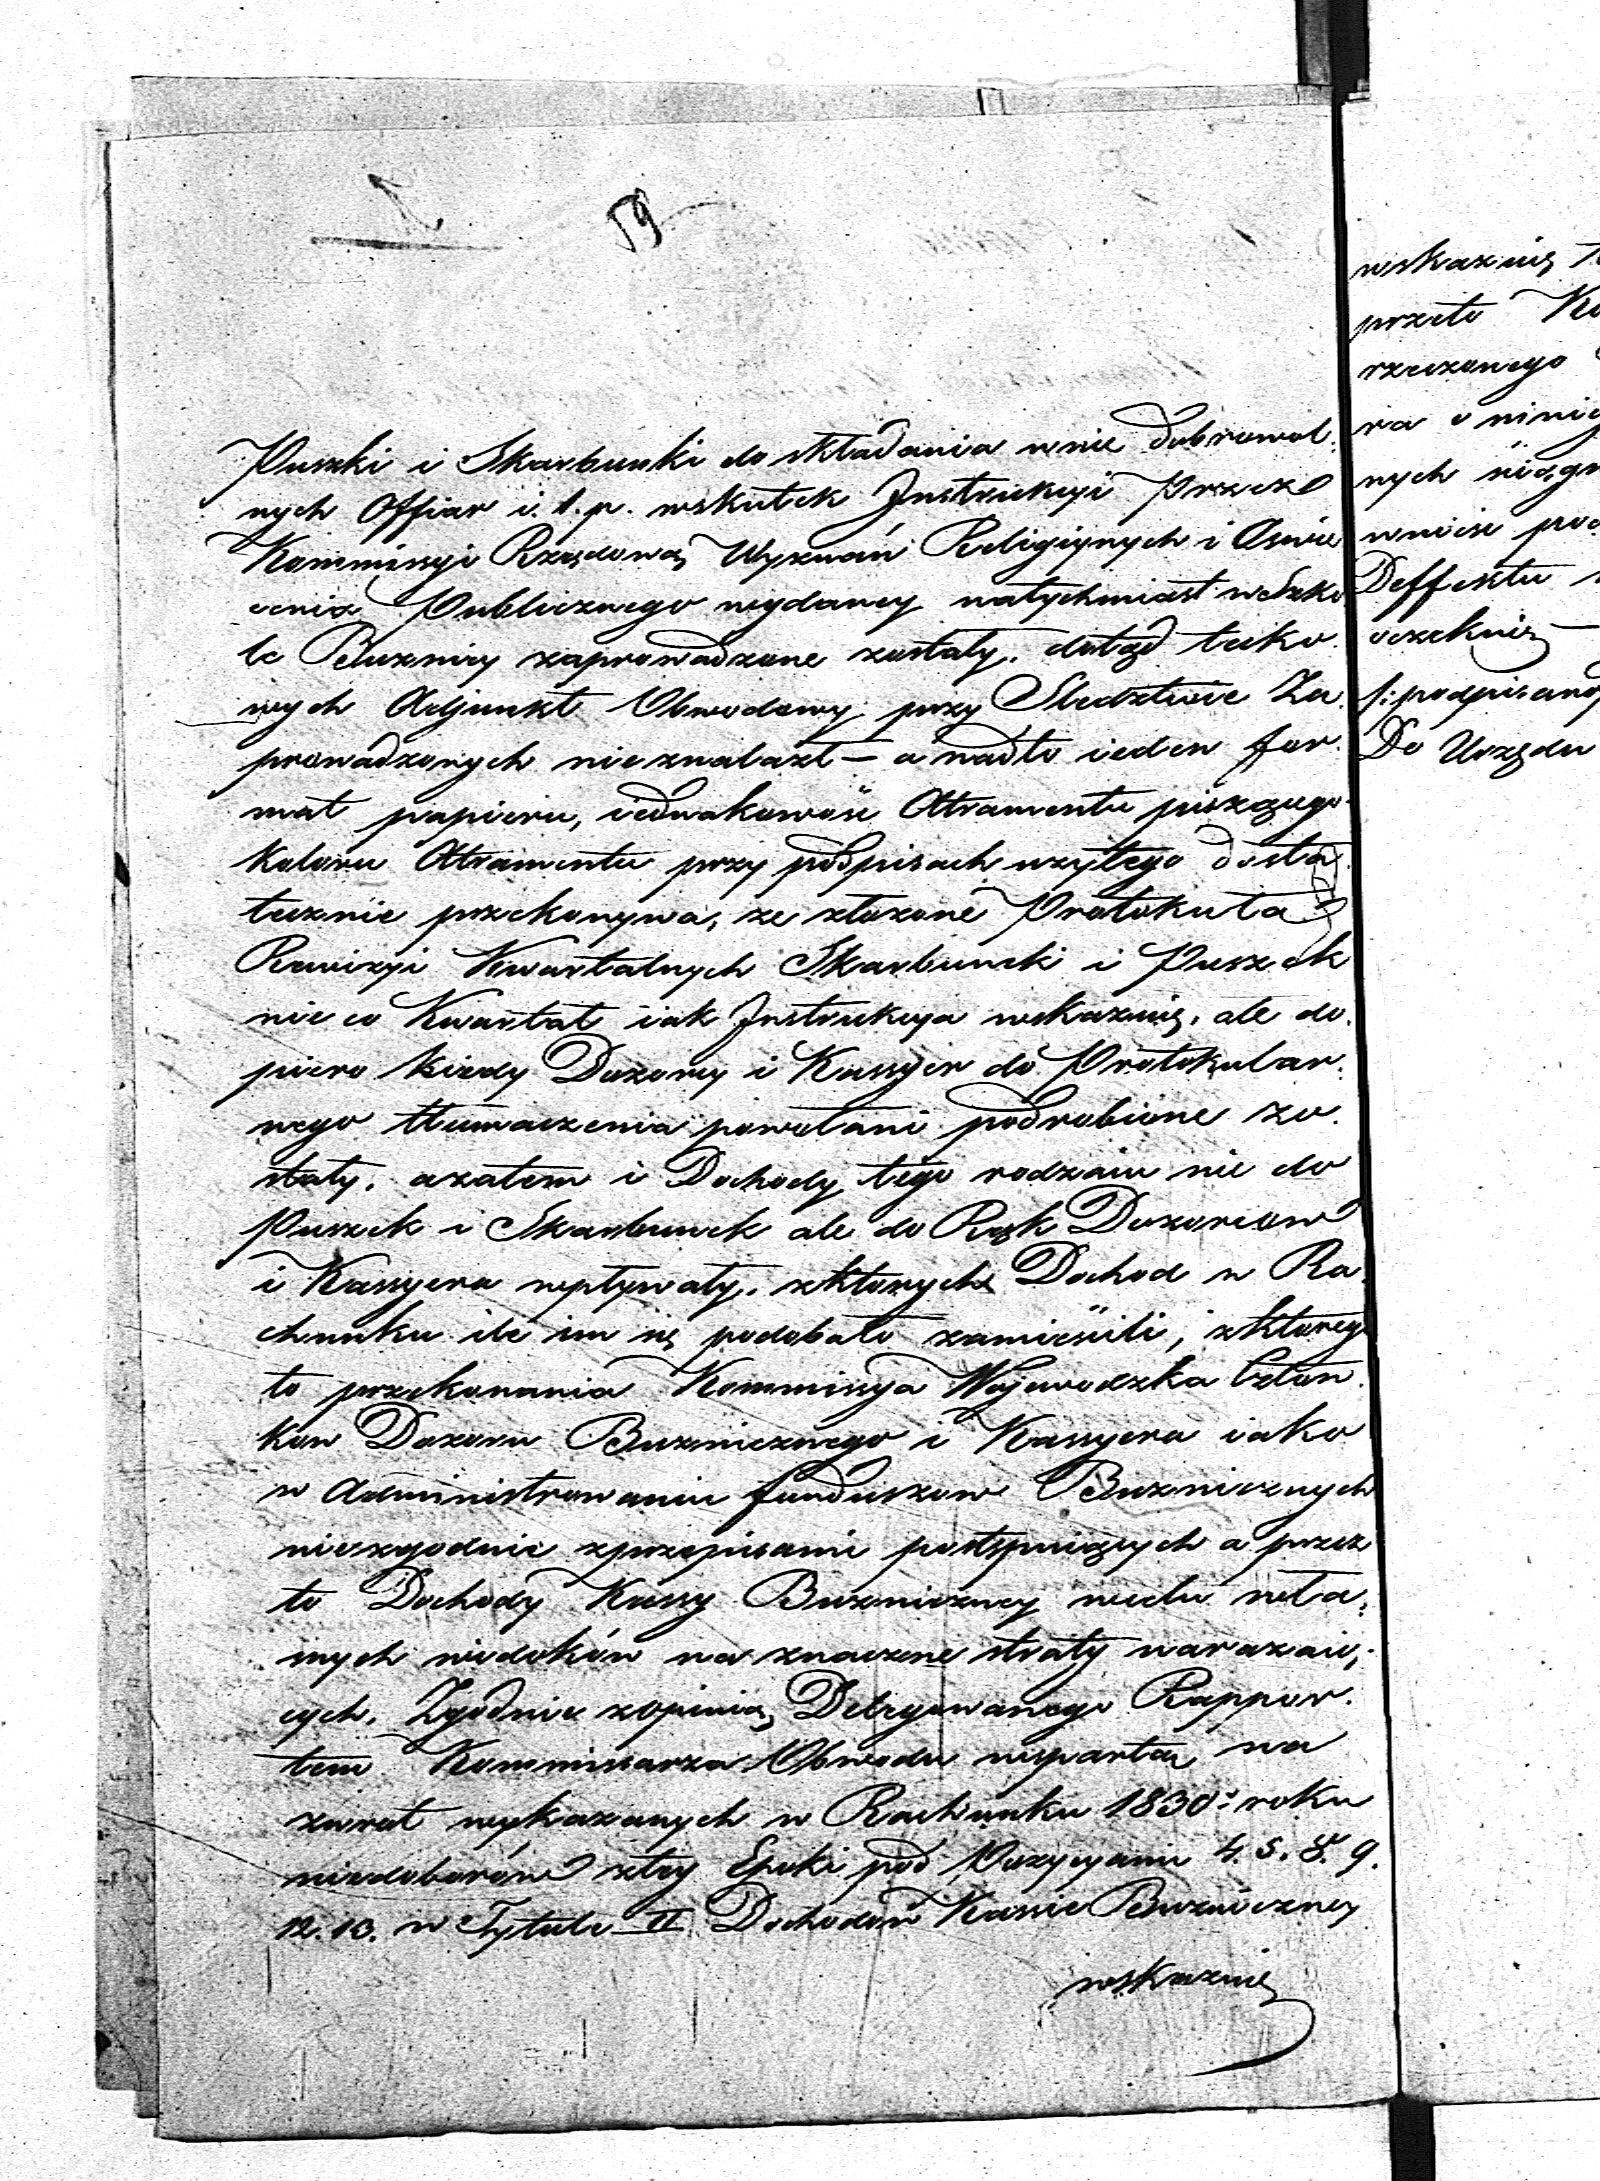 59
Puszki i Skarbunki do składania w nie dobrowol.
nych Offiar i. t. p. wskutek Instrukcyi przez
Kommissyę Rządową Wyznań Religiynych i Oswie
cenia Publicznego wydaney natychmiast w Szko
le Bużnicy zaprowadzone zostały. dotąd tako.
wych Adjunkt Obwodowy przy Sledztwie Za.
prowadzonych nieznalazł — a nadto ieden for.
mat papieru, iednakowość Atramentu piszącego
koloru Atramentu przy podpisach uzytego dosta.
tecznie przekonywa, ze złozone Protokuła
Rewizyi Kwartalnych Skarbunek i Puszek
nie co Kwartał iak Instrukcya wskazuie, ale do.
piero kiedy Dozorcy i Kassyer do Protokular.
nego tłumaczenia powołani podrobione zo.
stały. azatem i Dochody tego rodzaiu nie do
Puszek i Skarbunek ale do Rąk Dozorcow
i Kassyera wpływały. zktorych Dochod w Ra.
chunku ile im się podobało zamieścili, zktorego
to przekonania Kommissya Wojewodzka Człon.
kow Dozoru Bużnicznego i Kassyera iako
w Administrowaniu funduszow Bużnicznych
niezgodnie zprzepisami postępuiących a przez
to Dochody Kassy Bużniczney wedle
inych widoków na znaczne straty narazaią.
cych. Zgodnie zopinią Delegowanego Rappor.
tem Kommissarza Obwodu wspartą na
zwrot wykazanych w Rachunku 1830 roku
niedoborów ztey Epoki pod Pozycyami 4. 5. 8. 9.
12. 13. w Tytule II Dochodów Kassie Bużniczney
wskazuie
wskazuię
przeto
rzeczonego
ra o
nych
wnieść
Deffektu
oczekuię —
/: podpisano
Do Urzędu